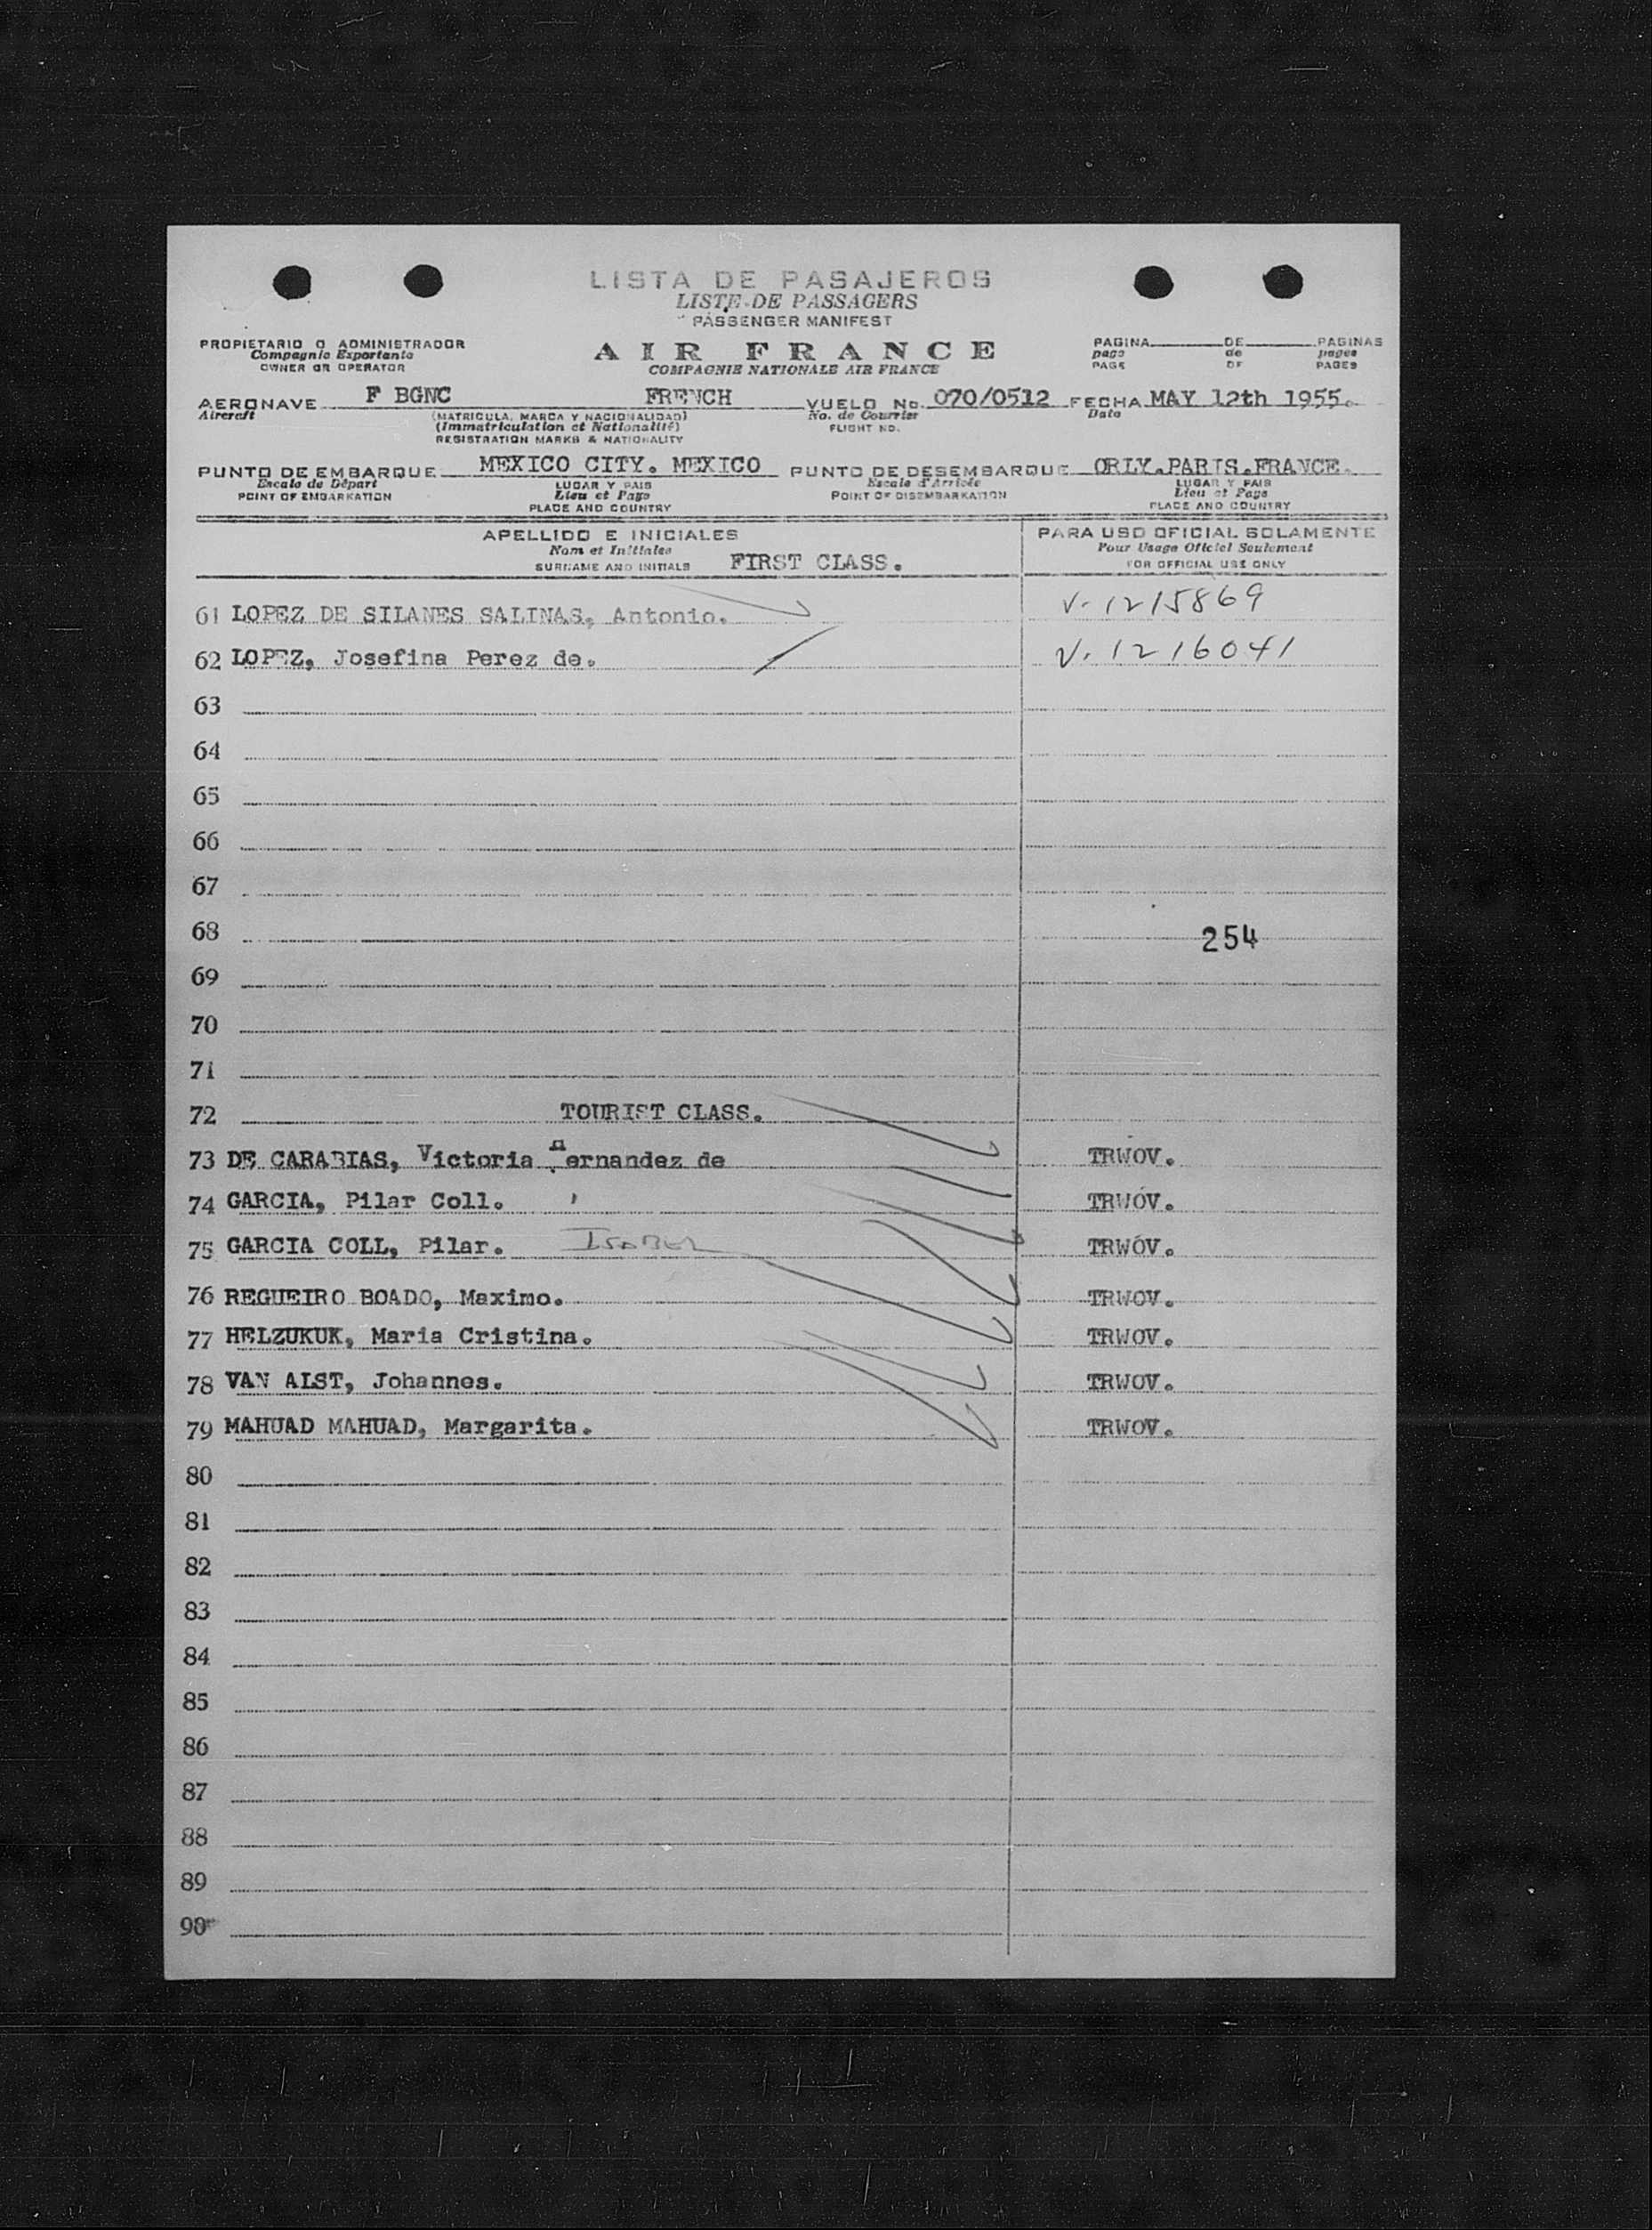 LISTA DE PASAJEROS
LISTE DE PASSAGERS
PASSENGER MANIFEST
PROPIETARIO O ADMINISTRADOR
Compagnie Exportante
OWNER OR OPERATOR
AIR FRANCE
COMPAGNIE NATIONALE AIR FRANCE
PAGINA DE PAGINAS
page de pages
PAGE OF PAGES
AERONAVE F BGNC FRENCH VUELO No. 070/0512 FECHA MAY 12th 1955.
Aircraft (MATRICULA, MARCA Y NACIONALIDAD) No. de Courrier Date
(Immatriculation et Nationalité) FLIGHT NO.
REGISTRATION MARKS & NATIONALITY
PUNTO DE EMBARQUE MEXICO CITY. MEXICO PUNTO DE DESEMBARQUE ORLY.PARIS.FRANCE.
Escale de Départ LUGAR Y PAIS Escale d'Arrivée LUGAR Y PAIS
POINT OF EMBARKATION Lieu et Pays POINT OF DISEMBARKATION Lieu et Pays
PLACE AND COUNTRY PLACE AND COUNTRY
APELLIDO E INICIALES PARA USO OFICIAL SOLAMENTE
Nom et Initiales Pour Usage Officiel Seulement
SURNAME AND INITIALS FIRST CLASS. FOR OFFICIAL USE ONLY
61 LOPEZ DE SILANES SALINAS, Antonio. V-1215869
62 LOPEZ, Josefina Perez de. V-1216041
63
64
65
66
67
68 254
69
70
71
72 TOURIST CLASS.
73 DE CARABIAS, Victoria Hernandez de TRWOV.
74 GARCIA, Pilar Coll. TRWOV.
75 GARCIA COLL, Pilar. ISABEL TRWOV.
76 REGUEIRO BOADO, Maximo. TRWOV.
77 HELZUKUK, Maria Cristina. TRWOV.
78 VAN ALST, Johannes. TRWOV.
79 MAHUAD MAHUAD, Margarita. TRWOV.
80
81
82
83
84
85
86
87
88
89
90